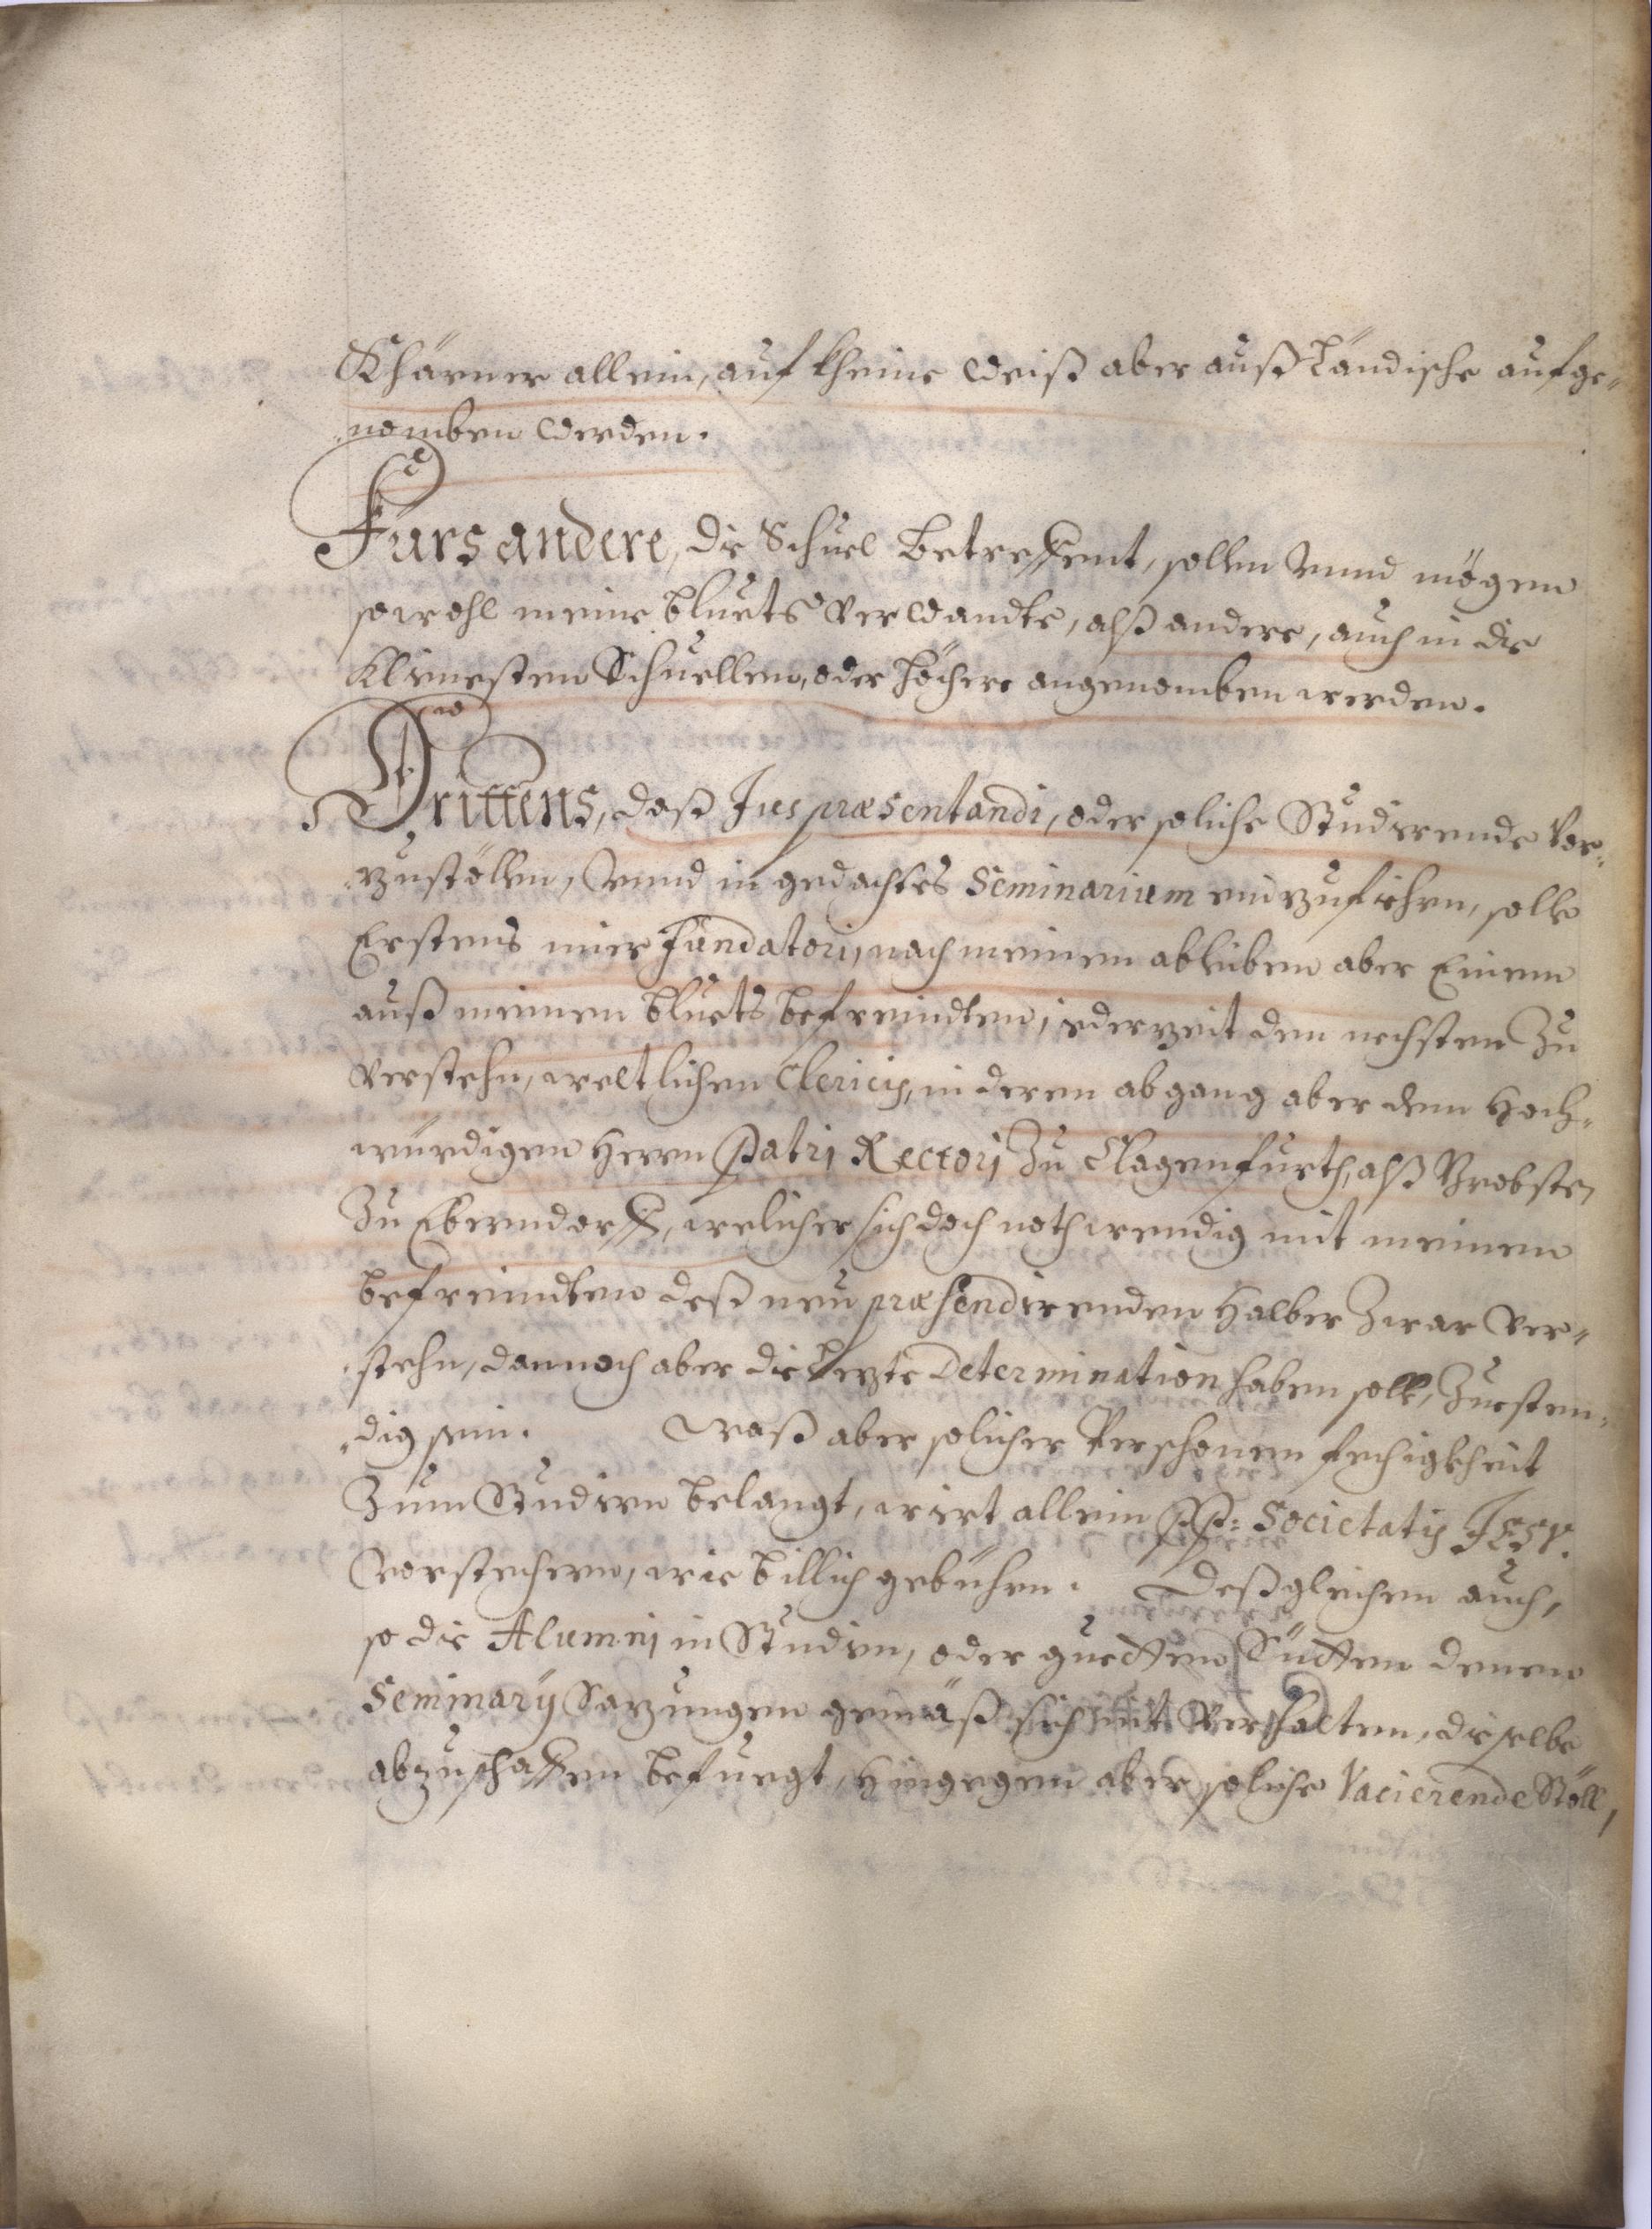 Khärner allein, auf kheine Weiß aber außländische aufge¬
nomben werden.
Fürs andere, die Schuel betreffent, sollen vnnd mögen
sowohl meine bluets verwandte, alß andere, auch in die
kleinesten Schuellen, oder höchere angenomben werden.
Drittens, daß Jus præsentandi, oder soliche Studirende vor¬
zustöllen, vnnd in gedachtes Seminarium einzufiehren, solle
Erstens mier Fundatori, nach meinem ableiben aber Einem
auß meinen bluets befreindten, iederzeit den nechsten zu
verstehn, weltlichen Clericis, in deren abgang aber dem Hoch¬
würdigen Herrn Patri Rectori zu Clagenfurth, alß Probsten
zu Eberndorff, welicher sich doch nothwendig mit meinen
befreindten deß neu præsendirenden halber zwar ver¬
stehn, dannoch aber die lezte Determination haben solle, zuesten¬
dig sein. Waß aber solicher Persohnen fechigkheit
zum Studiren belangt, wirt allein PP: Societatis JESV.
Vorstehern, wie billich gebühren. Deßgleichen auch,
so die Alumni in Studien, oder guetten Sütten denen
Seminarÿ Sazungen gemäß sich nit verhalten, dieselbe
abzuschaffen befuegt, hingegen aber soliche Vacierende Stöll,